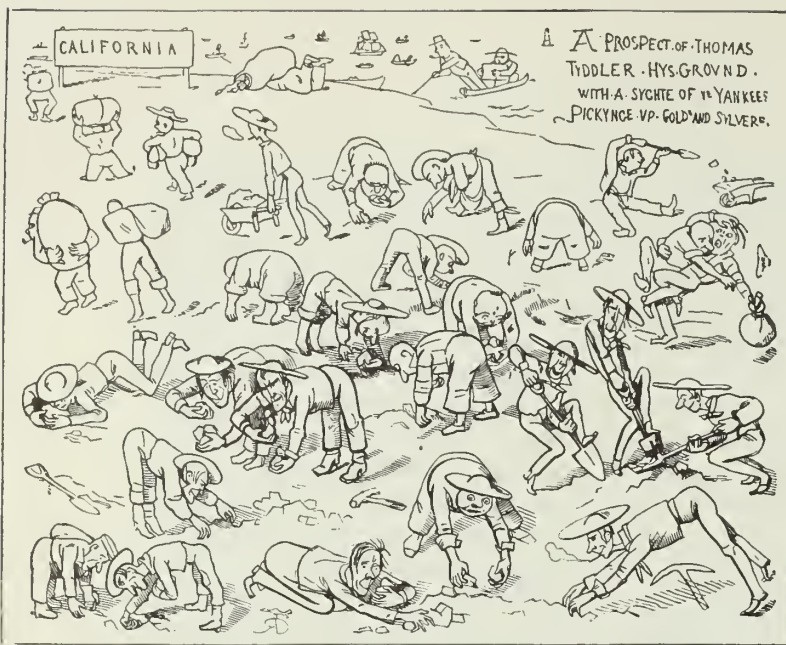 CALIFORNIA
A PROSPECT.OF.THOMAS
TYDDLER.HYS.GROVND.
WITH.A.SYGHTE OF YE YANKEES
PICKYNGE.VP.GOLDE AND SYLVERE.